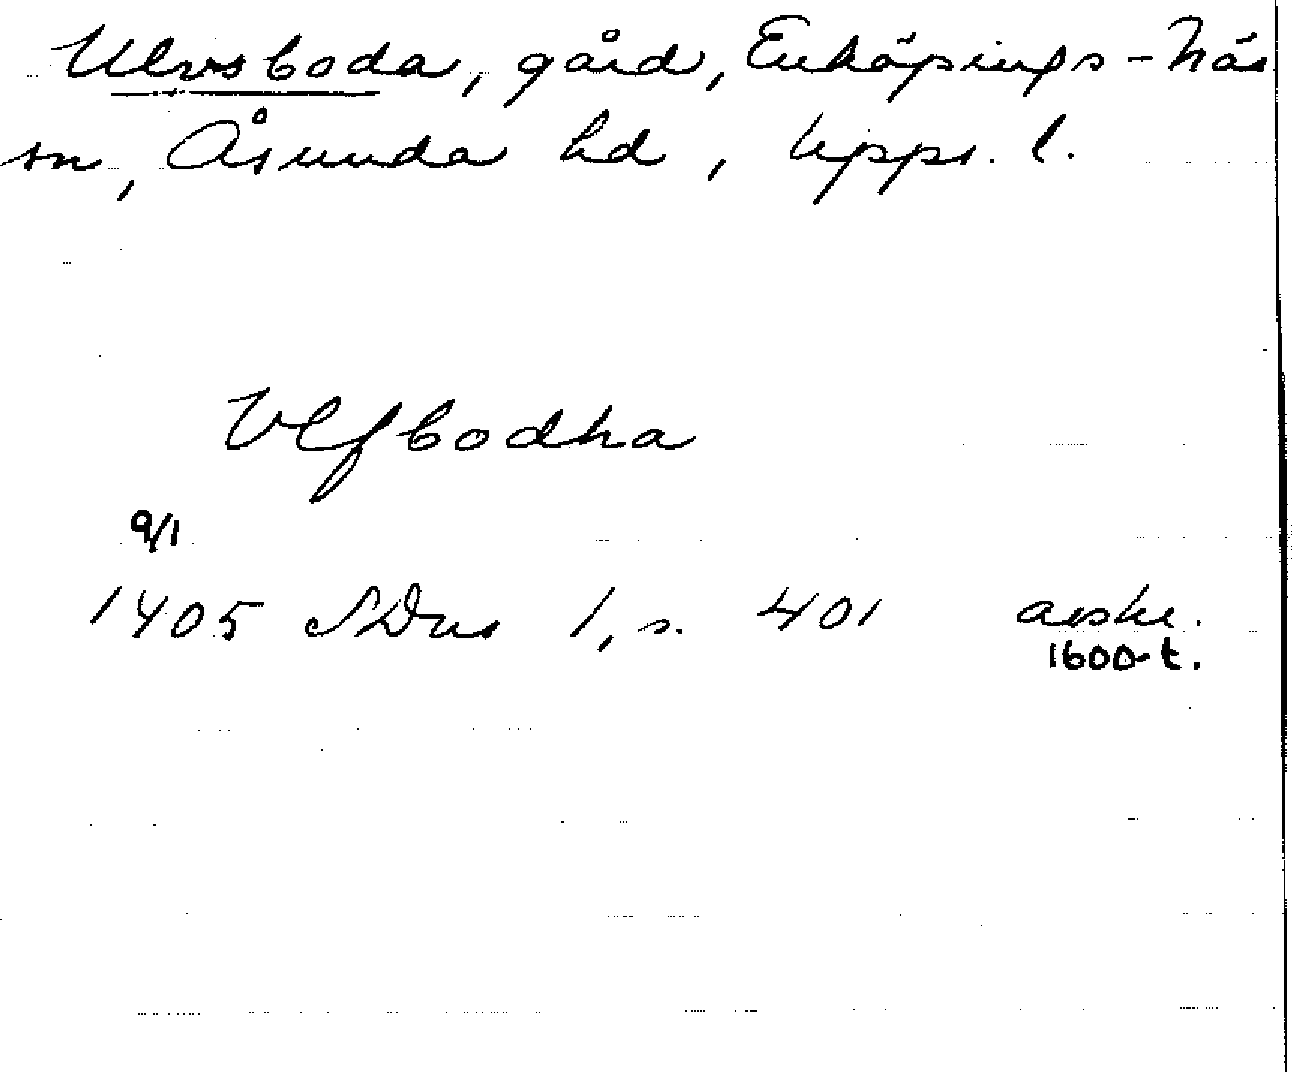 Ulvsboda, gård, Enköpings-Näs
sn, Åsunda hd, Upps. l.
Vlfbodha
9/1
1405 SDns 1, s. 401 avskr.
1600-t.